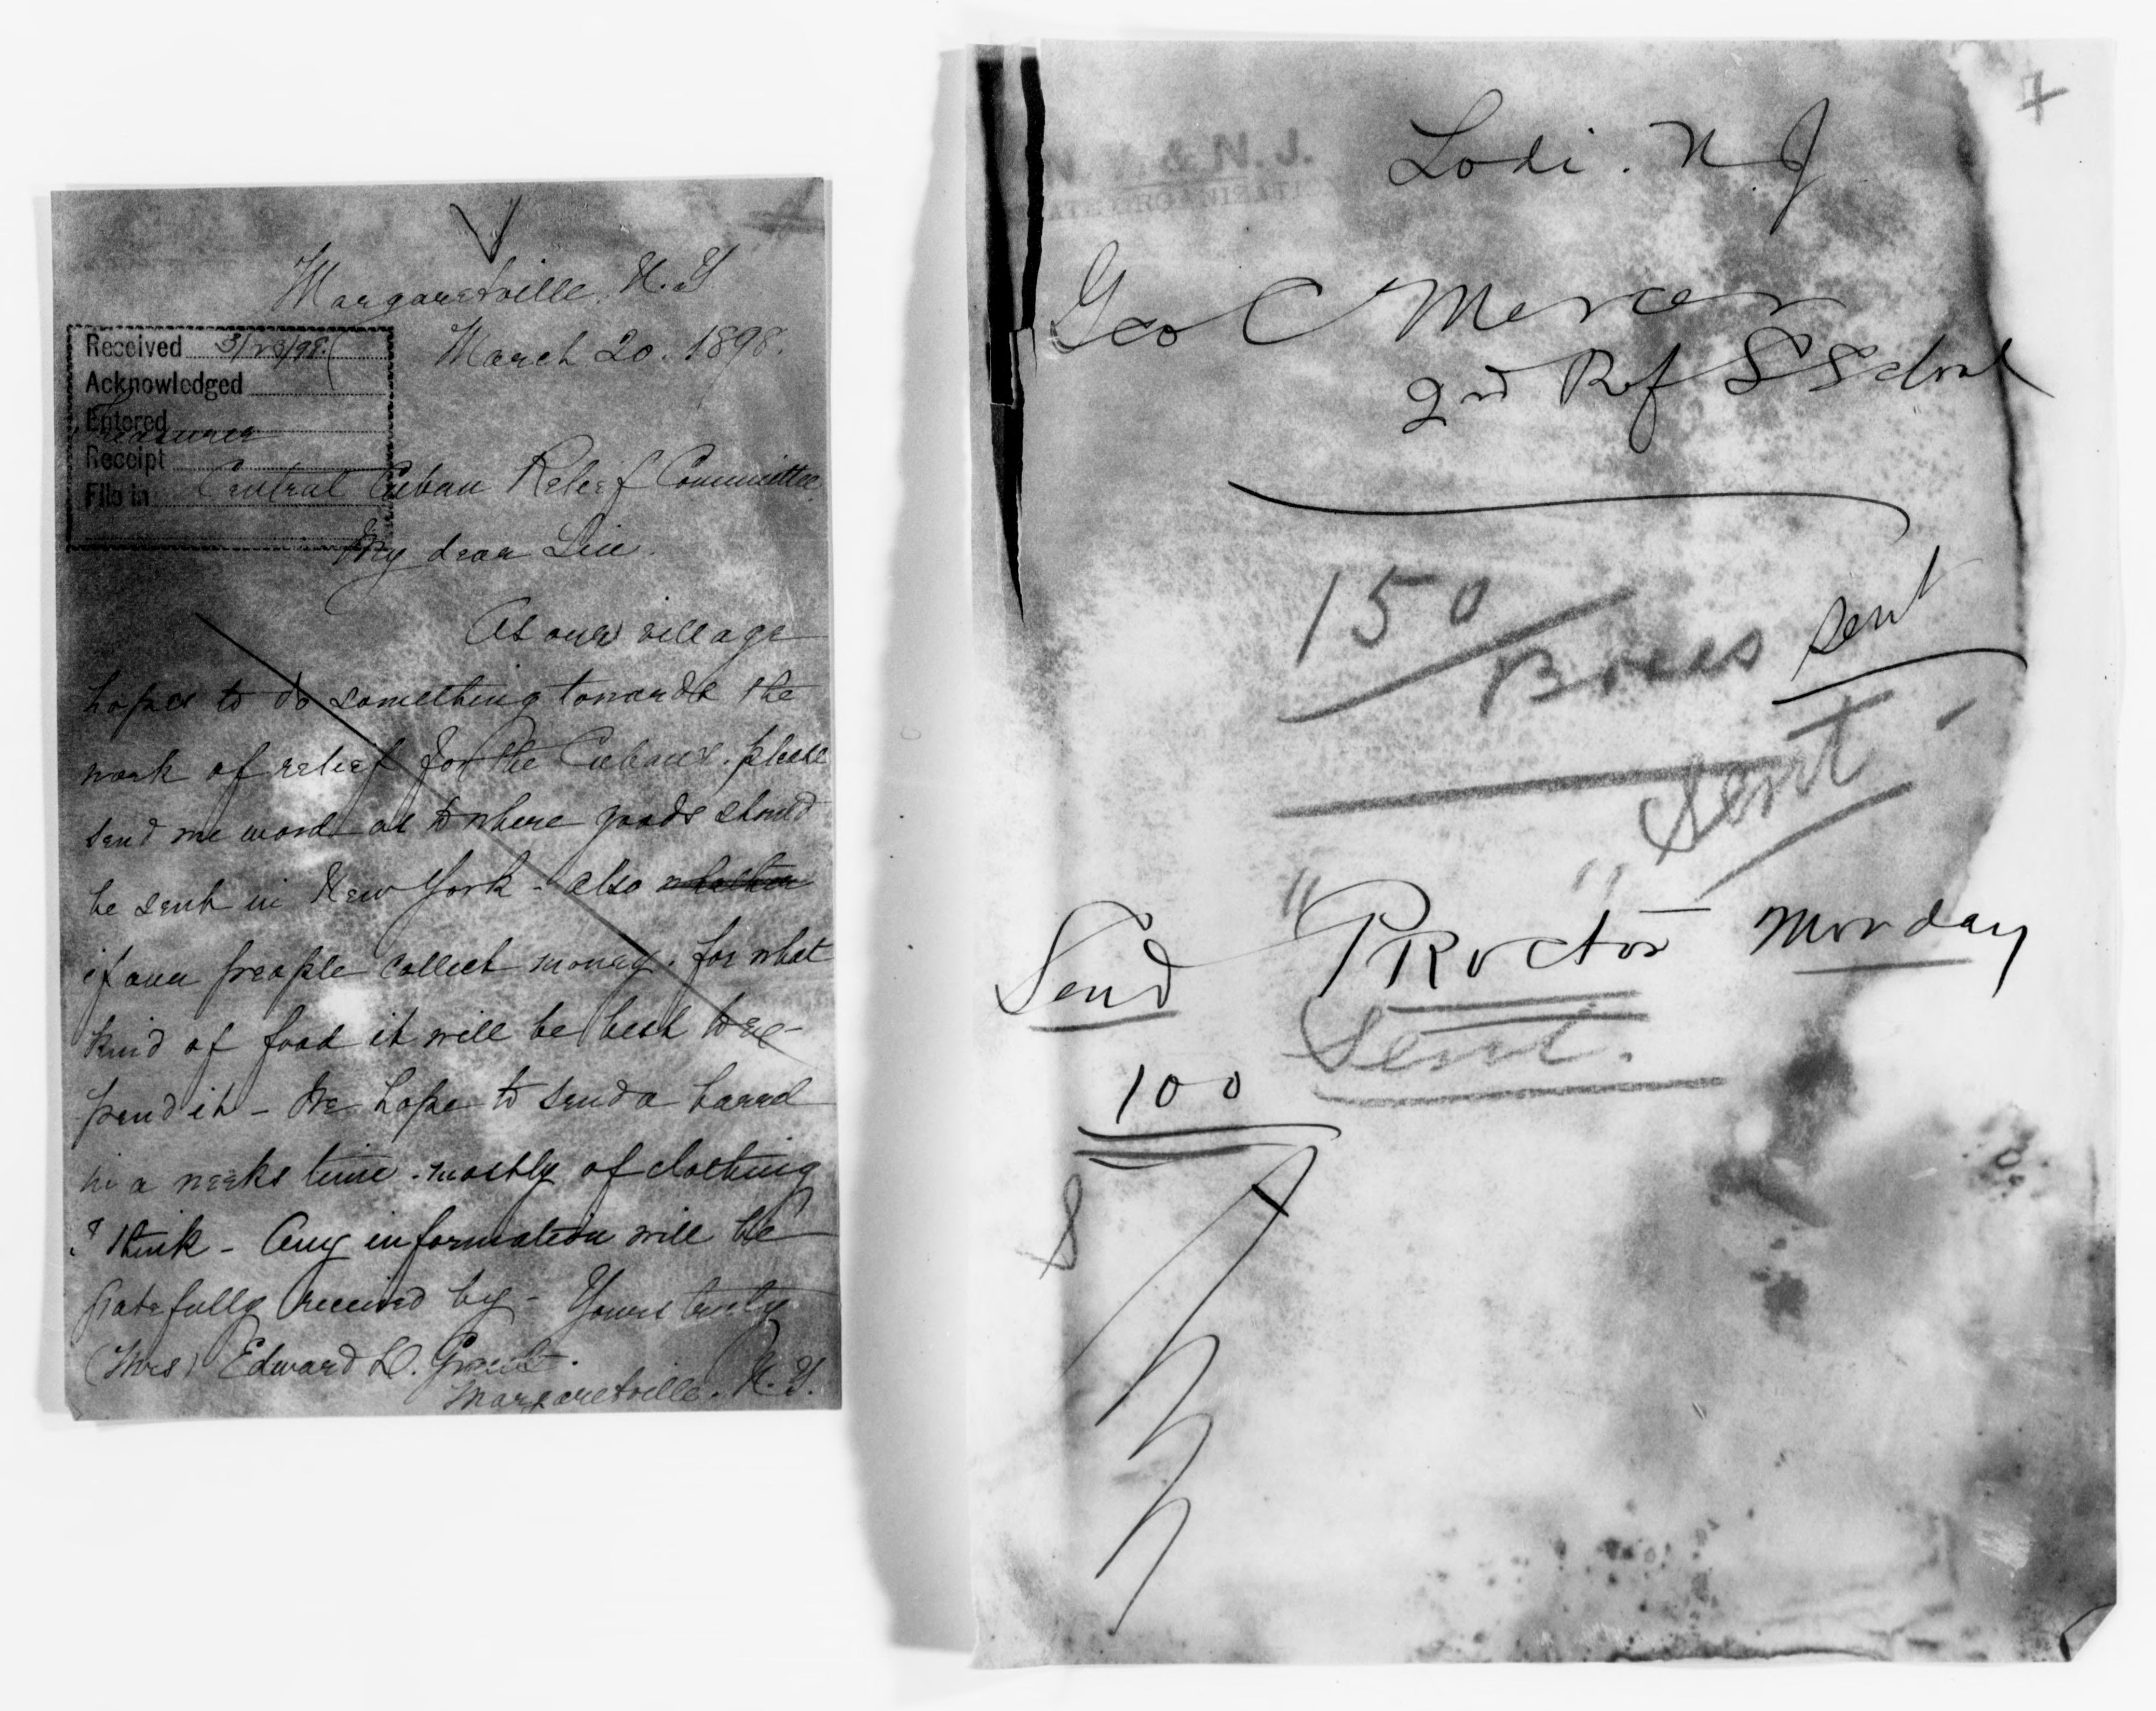 Margaretville, N.Y
March 20. 1898.
Received 3/23/98.
Acknowledged
Entered
Receipt
File in
Treasurer
Central Cuban Relief Committee.
My dear Sir.
As our village
hopes to do something towards the
work of relief for the Cubans, please
send me word as to where goods should
be sent in New York - also whether
if our people collect money, for what
kind of food it will be best to ex-
pend it - We hope to send a barrel
in a weeks time - mostly of clothing
I think - Any information will be
gratefully received by - Yours truly
(Mrs) Edward L. Grant.
Margaretville. N.Y.
7
N. Y. & N. J.
STATE ORGANISATION
Lodi. N. J
Geo C Mercer
2nd Rf S School
150
Boxes sent
Sent
Send "Proctor" Monday
Sent.
100
8